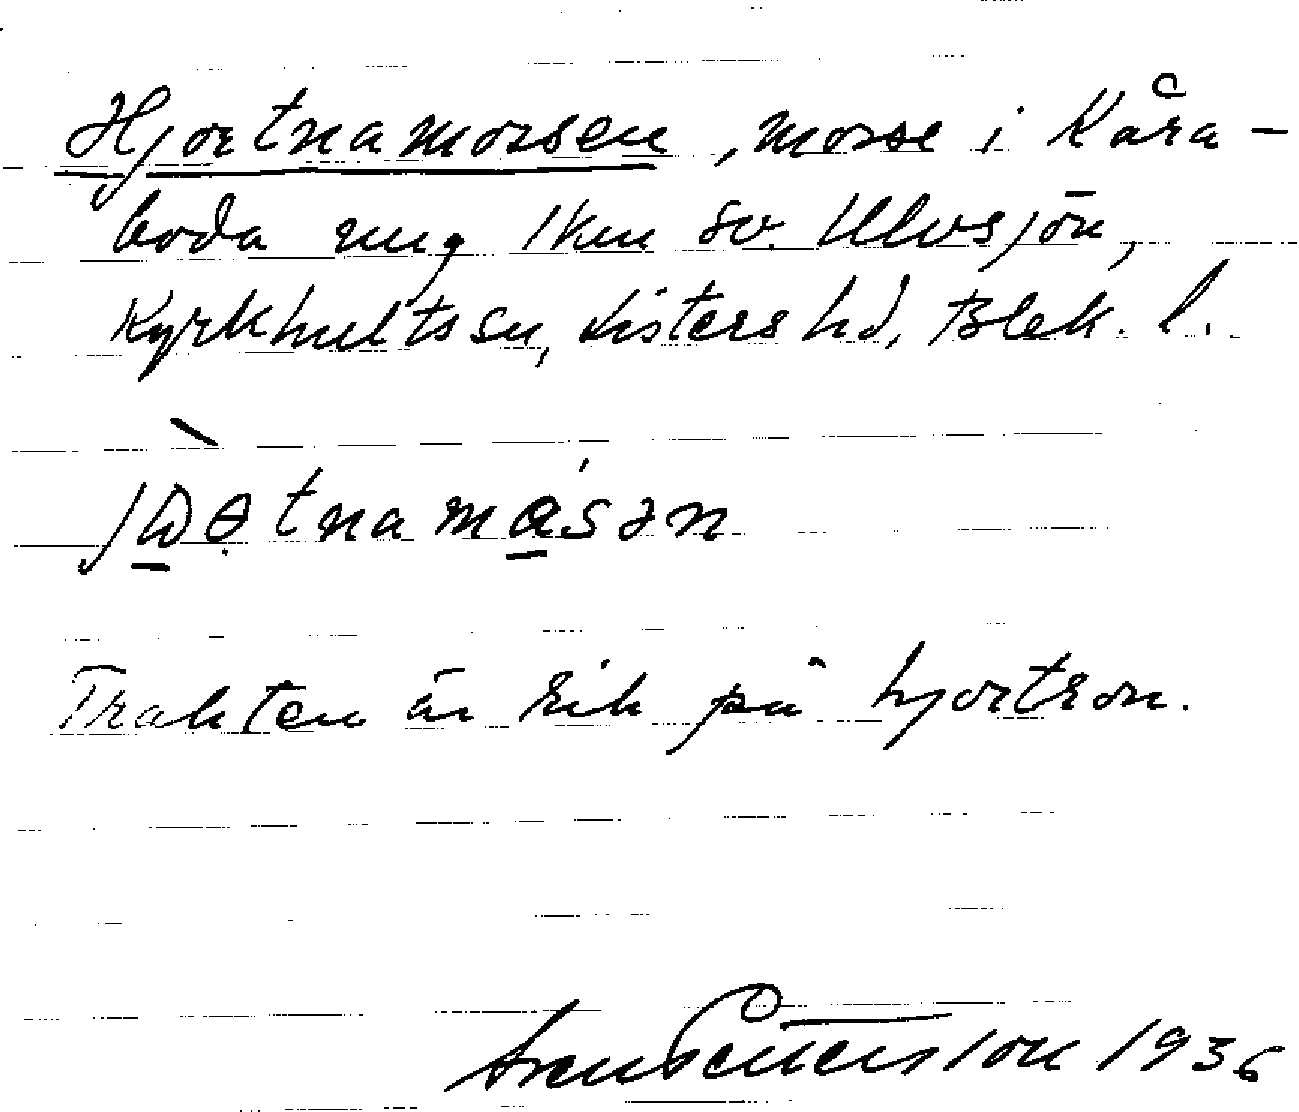 Hjortnamorsen, morse i Kåra-
boda ung 1 km sv. Ulvsjön,
Kyrkhults sn, Listers hd, Blek. l.
Trakten är rik på hjortron.
Sven Pettersson 1936